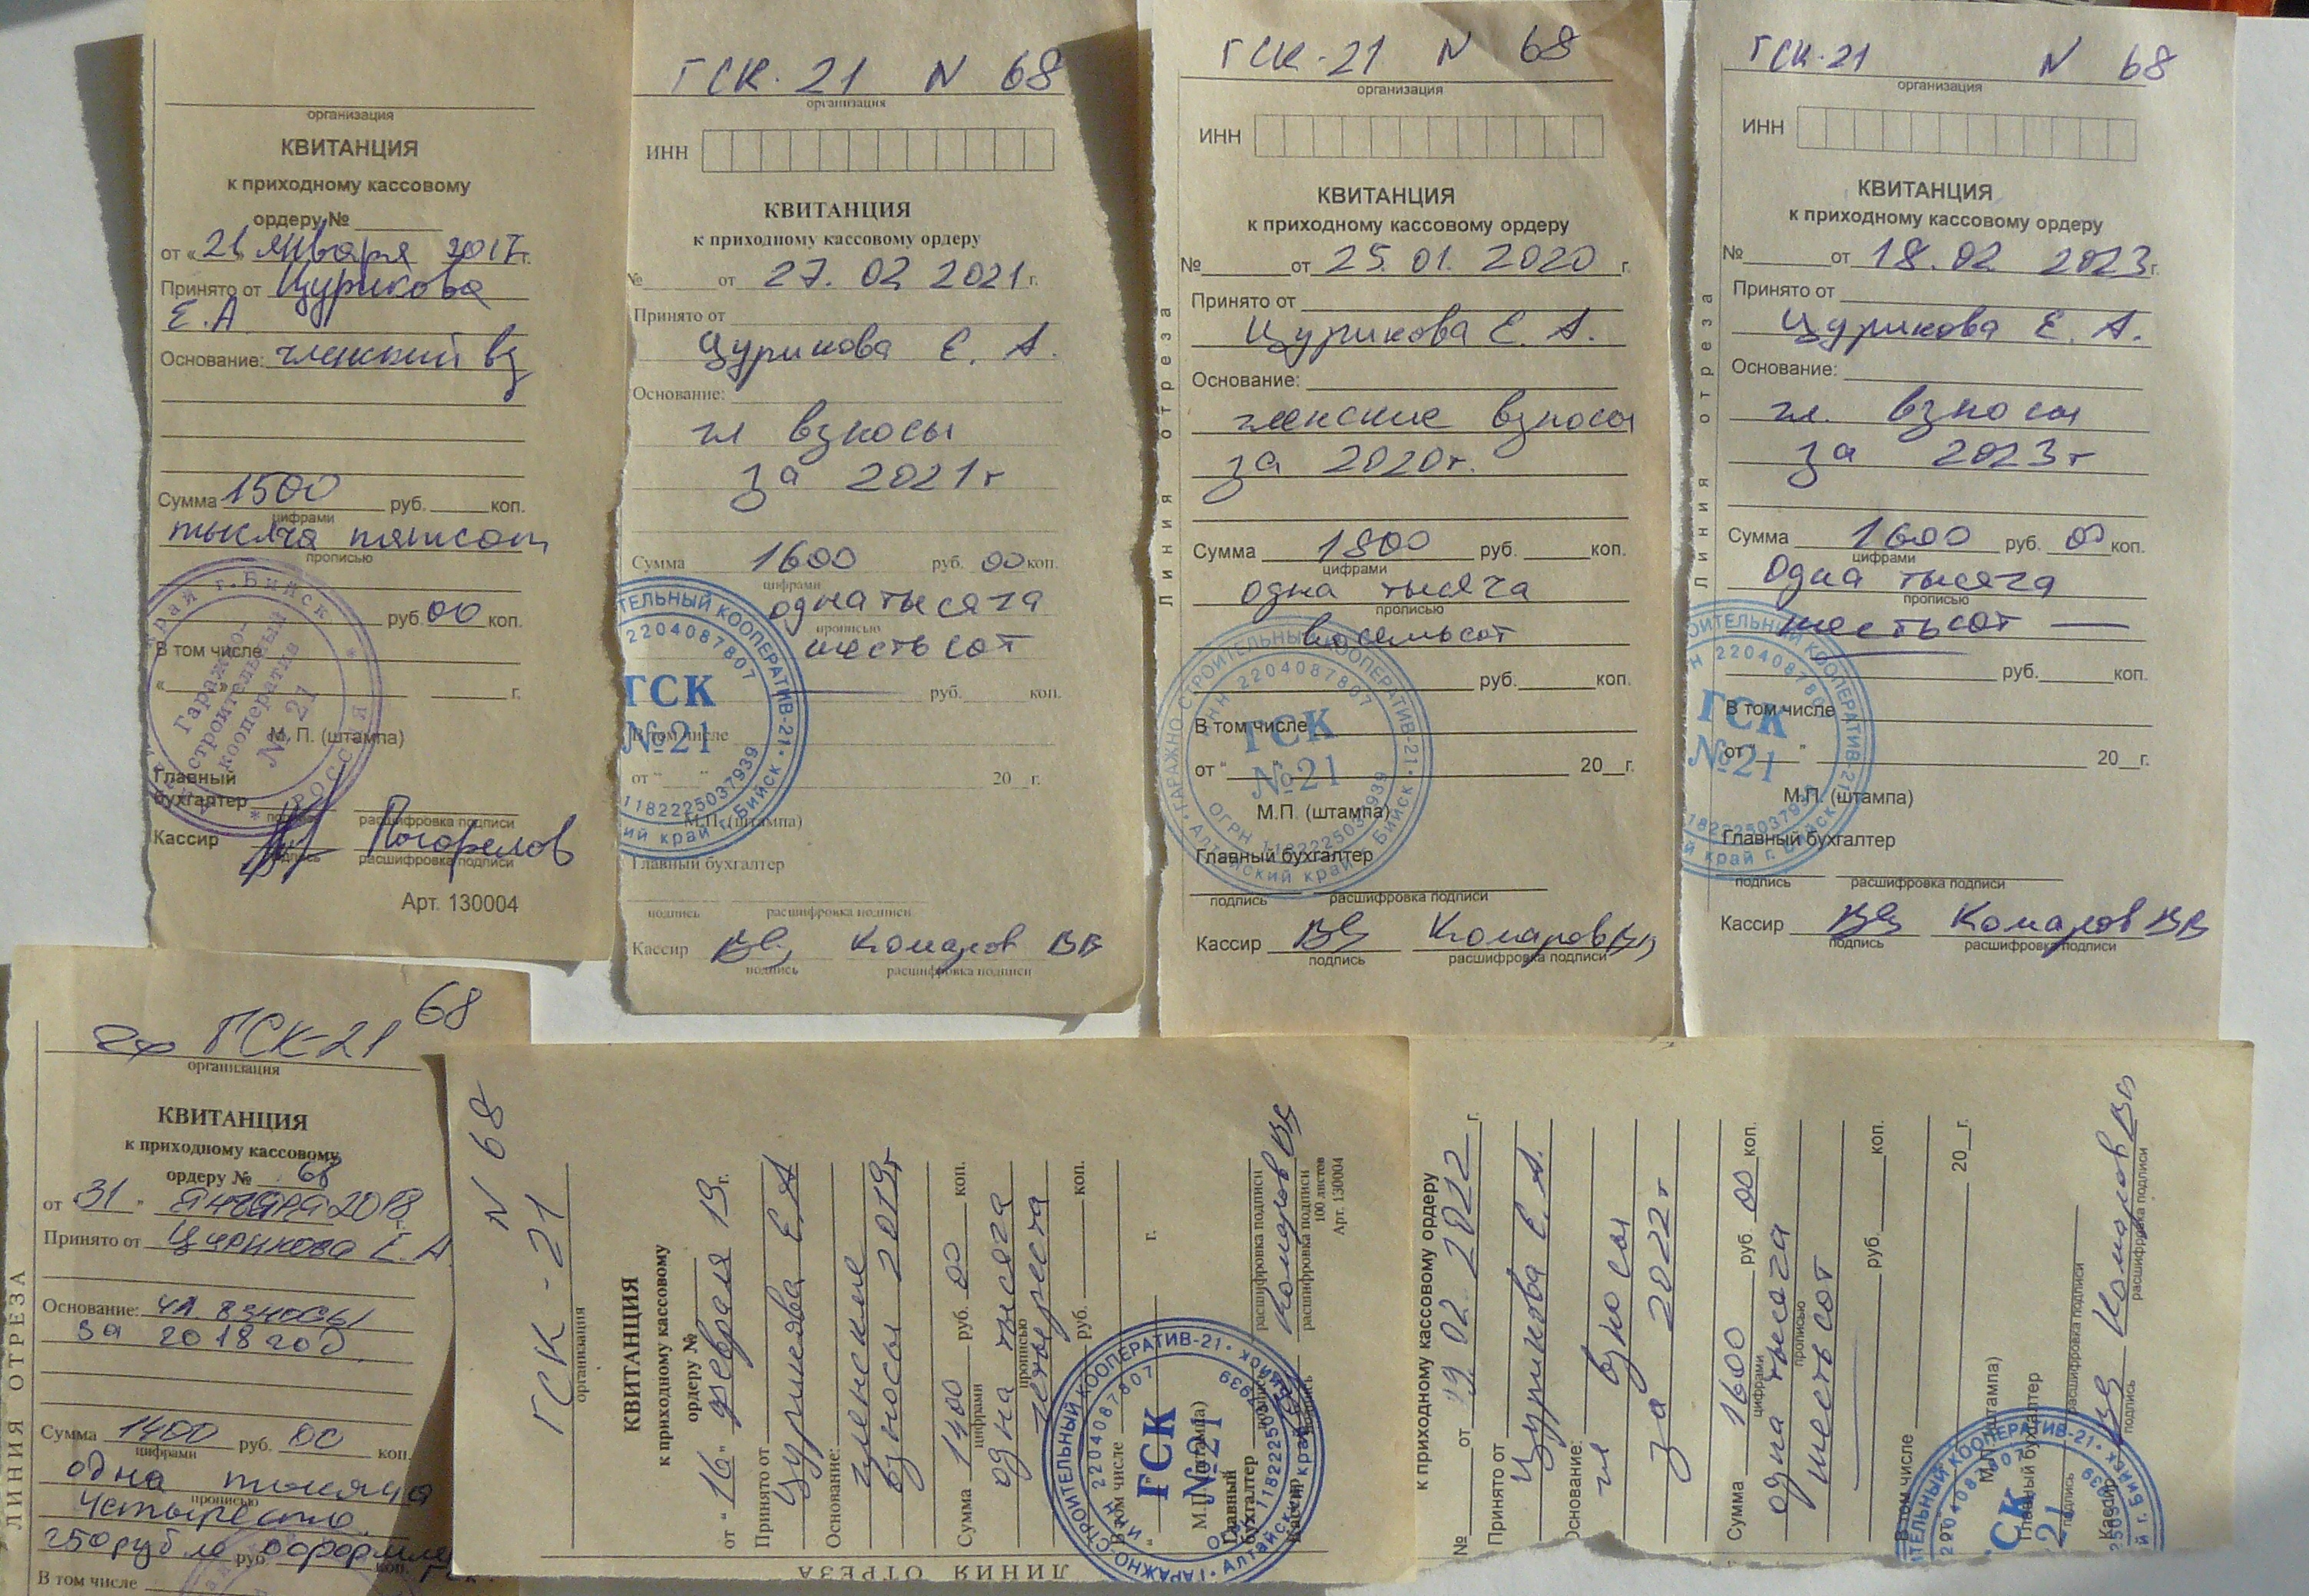 организация
КВИТАНЦИЯ
к приходному кассовому
ордеру №
от «21» января 2017г.
Принято от Цурикова
Е.А
Основание: членский вз
Сумма 1500 руб. коп.
цифрами
тысяча пятсот
прописью
руб. 00 коп.
В том числе
« » г.
М. П. (штампа)
Главный
бухгалтер
подпись расшифровка подписи
Кассир Погорелов
подпись расшифровка подписи
Арт. 130004
край г. Бийск *
Гаражно-
строительный
кооператив
№ 21
РОССИЯ
ГСК-21 N 68
организация
ИНН
КВИТАНЦИЯ
к приходному кассовому ордеру
№ от 27. 02 2021 г.
Принято от
Цурикова Е. А.
Основание:
чл взносы
за 2021г
Сумма 1600 руб. 00 коп.
цифрами
одна тысяча
прописью
шестьсот
руб. коп.
В том числе
от “ ” 20 г.
М.П. (штампа)
Главный бухгалтер
подпись расшифровка подписи
Кассир Комаров ВВ
подпись расшифровка подписи
ТЕЛЬНЫЙ КООПЕРАТИВ-21 •
2204087807
ГСК
№21
1182225037939
ий край г. Бийск •
ГСК-21 N 68
организация
ИНН
КВИТАНЦИЯ
к приходному кассовому ордеру
№ от 25. 01. 2020 г.
Принято от
Цурикова Е. А.
Основание:
членские взносы
за 2020г.
Сумма 1800 руб. коп.
цифрами
одна тысяча
прописью
восемьсот
руб. коп.
В том числе
от “ ” 20 г.
М.П. (штампа)
Главный бухгалтер
подпись расшифровка подписи
Кассир Комаров ВВ
подпись расшифровка подписи
Линия отреза
ГАРАЖНО СТРОИТЕЛЬНЫЙ КООПЕРАТИВ-21 •
ИНН 2204087807
ГСК
№21
ОГРН 1182225037939
Алтайский край г. Бийск •
ГСК-21 N 68
организация
ИНН
КВИТАНЦИЯ
к приходному кассовому ордеру
№ от 18. 02 2023 г.
Принято от
Цурикова Е. А.
Основание:
чл. взносы
за 2023г
Сумма 1600 руб. 00 коп.
цифрами
одна тысяча
прописью
шестьсот —
руб. коп.
В том числе
от “ ” 20 г.
М.П. (штампа)
Главный бухгалтер
подпись расшифровка подписи
Кассир Комаров ВВ
подпись расшифровка подписи
Линия отреза
ОИТЕЛЬНЫЙ КООПЕРАТИВ-21
Н 220408780
ГСК
№21
182225037939
й край г. Бийск
68
ГСК-21
организация
КВИТАНЦИЯ
к приходному кассовому
ордеру № 68
от “31” января 2018
г.
Принято от Цурикова Е. А
Основание: чл. взносы
за 2018 год.
Сумма 1400 руб. 00 коп.
цифрами
одна тысяча
прописью
четыреста.
250 рубле оформле
руб. коп.
В том числе
ЛИНИЯ ОТРЕЗА
N 68
ГСК-21
организация
КВИТАНЦИЯ
к приходному кассовому
ордеру №
от “16” февраля 19 г.
Принято от
Цурикова Е. А
Основание:
членские
взносы 2019г
Сумма 1400 руб. 00 коп.
цифрами
одна тысяча
прописью
четыреста
руб. коп.
В том числе
“ г.
М.П. (штампа)
Главный
бухгалтер
подпись расшифровка подписи
Кассир Комаров ВВ
подпись расшифровка подписи
100 листов
Арт. 130004
ЛИНИЯ ОТРЕЗА
ГАРАЖНО-СТРОИТЕЛЬНЫЙ КООПЕРАТИВ-21 •
ИНН 2204087807
ГСК
№21
к приходному кассовому ордеру
№ от 19 02 2022 г.
Принято от
Цурикова Е. А.
Основание:
чл взносы
за 2022г
Сумма 1600 руб. 00 коп.
цифрами
одна тысяча
прописью
шестьсот
руб. коп.
В том числе
20 г.
М.П. (штампа)
Главный бухгалтер
подпись расшифровка подписи
Кассир Комаров ВВ
подпись расшифровка подписи
ТЕЛЬНЫЙ КООПЕРАТИВ-21 •